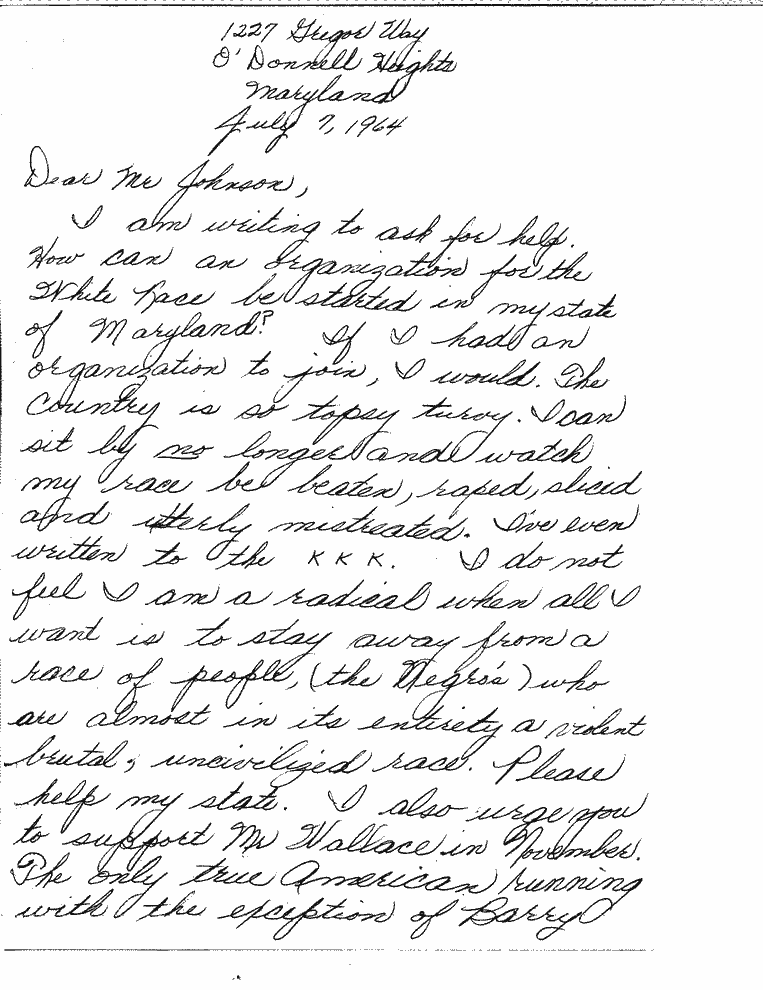 1227 Gregor Way
O'Donnell Heights
Maryland
July 7, 1964
Dear Mr Johnson,
I am writing to ask for help.
How can an organization for the
White Race be started in my state
of Maryland? If I had an
organization to join, I would. The
country is so topsy turvy. I can
sit by no longer and watch
my race be beaten, raped, sliced
and utterly mistreated. I've even
written to the KKK. I do not
feel I am a radical when all I
want is to stay away from a
race of people, (the Negro's) who
are almost in its entirety a violent
brutal, uncivilized race. Please
help my state. I also urge you
to support Mr Wallace in November.
The only true American running
with the exception of Barry